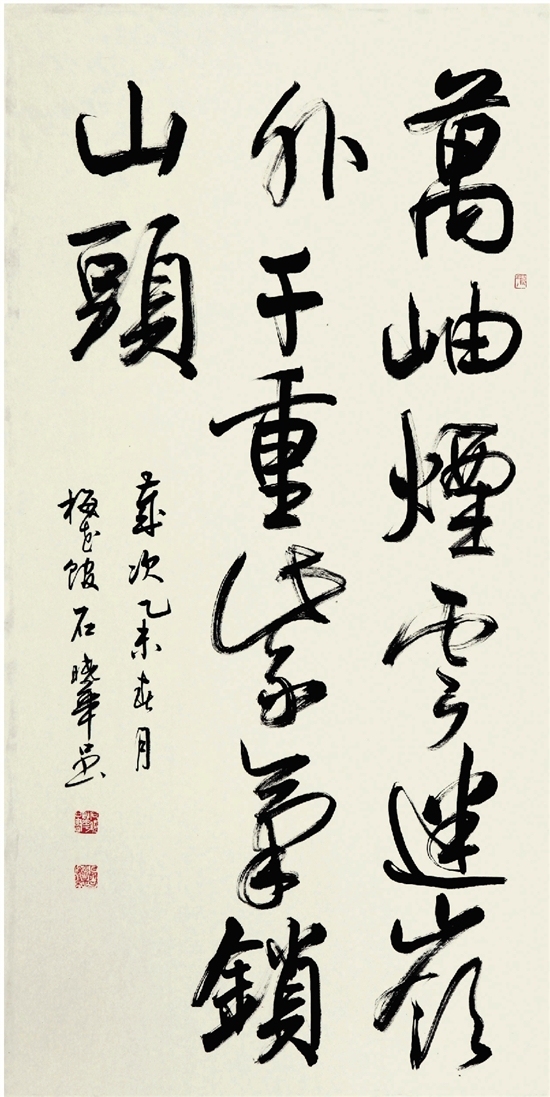 萬岫煙雲迷嶺
外千重紫氣鎖
山頭
歲次乙未春月
梅花館石曉華墨